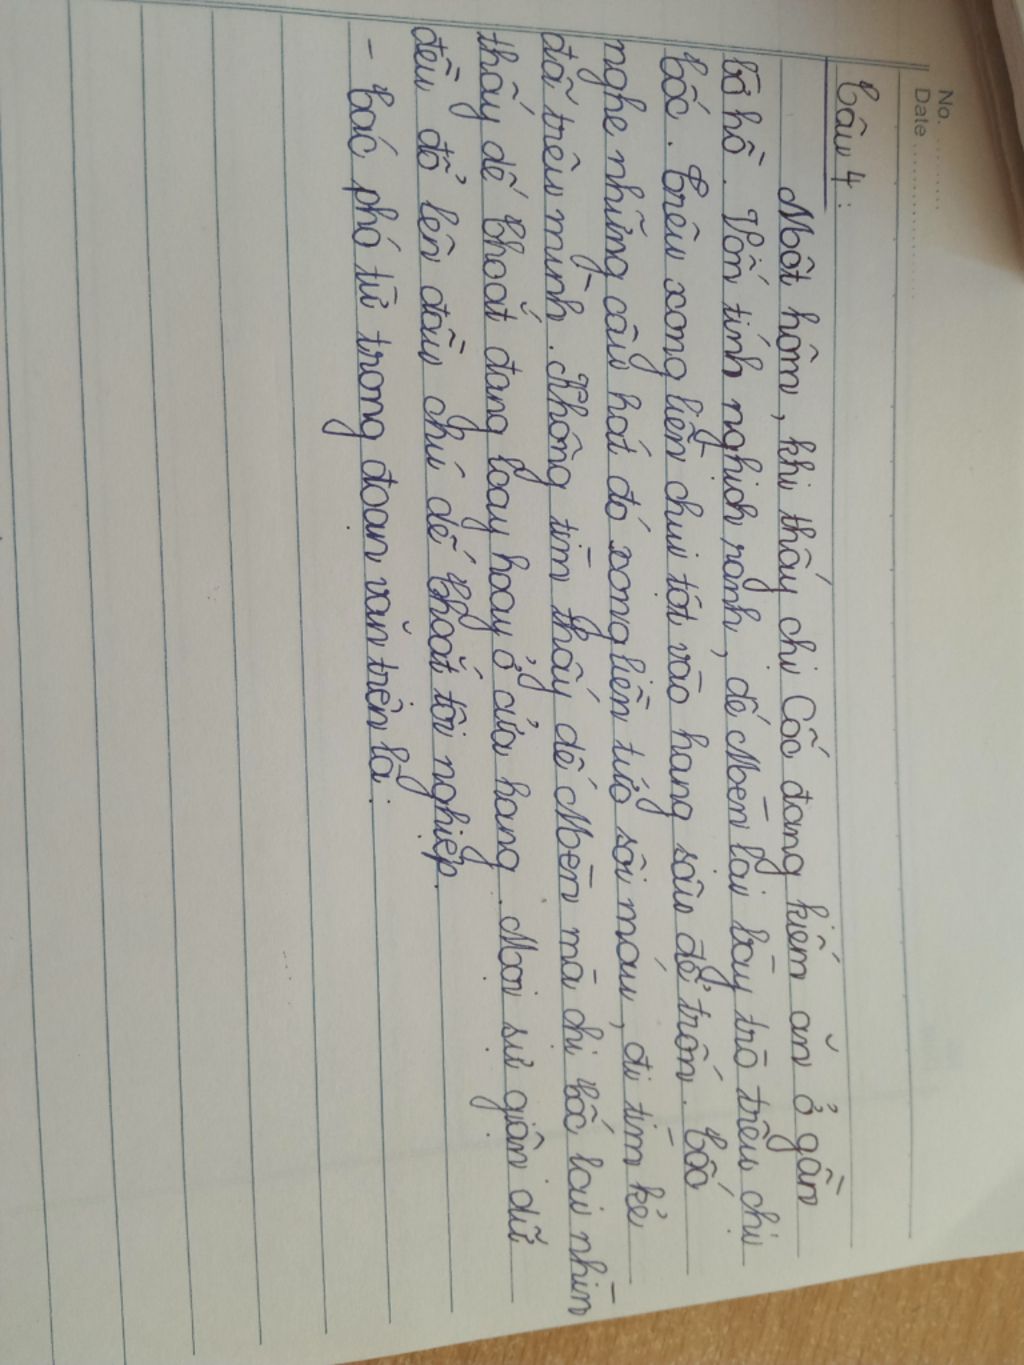 No. ............
Date ........................
Câu 4:
Một hôm, khi thấy chị Cốc đang kiếm ăn ở gần
bờ hồ. Vốn tính nghịch ranh, dế Mèn lại bày trò trêu chị
Cốc. Trêu xong liền chui tọt vào hang sâu để trốn. Cốc
nghe những câu hát đó xong liền tức sôi máu, đi tìm kẻ
đã trêu mình. Không tìm thấy dế Mèn mà chị Cốc lại nhìn
thấy dế Choắt đang loay hoay ở cửa hang. Mọi sự giận dữ
đều đổ lên đầu chú dế Choắt tội nghiệp.
- Các phó từ trong đoạn văn trên là: